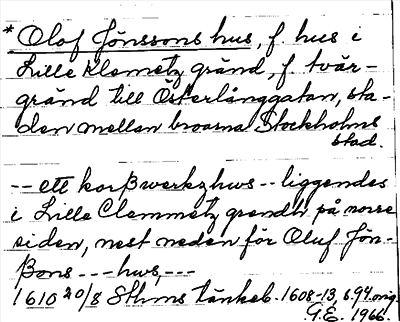 * Olof Jönssons hus, f. hus i
Lille Klemetz gränd, f. tvär-
gränd till Österlånggatan, sta-
den mellan broarna Stockholms
stad.
-- ett korßwerkzhws -- liggendes
i Lille Clemmetz grendh på norre
siden, nest neden för Oluf Jön-
ßons --- hws, ---
1610 20/8 Sthms tänkeb. 1608-13, s. 94 orig.
G.E. 1966.